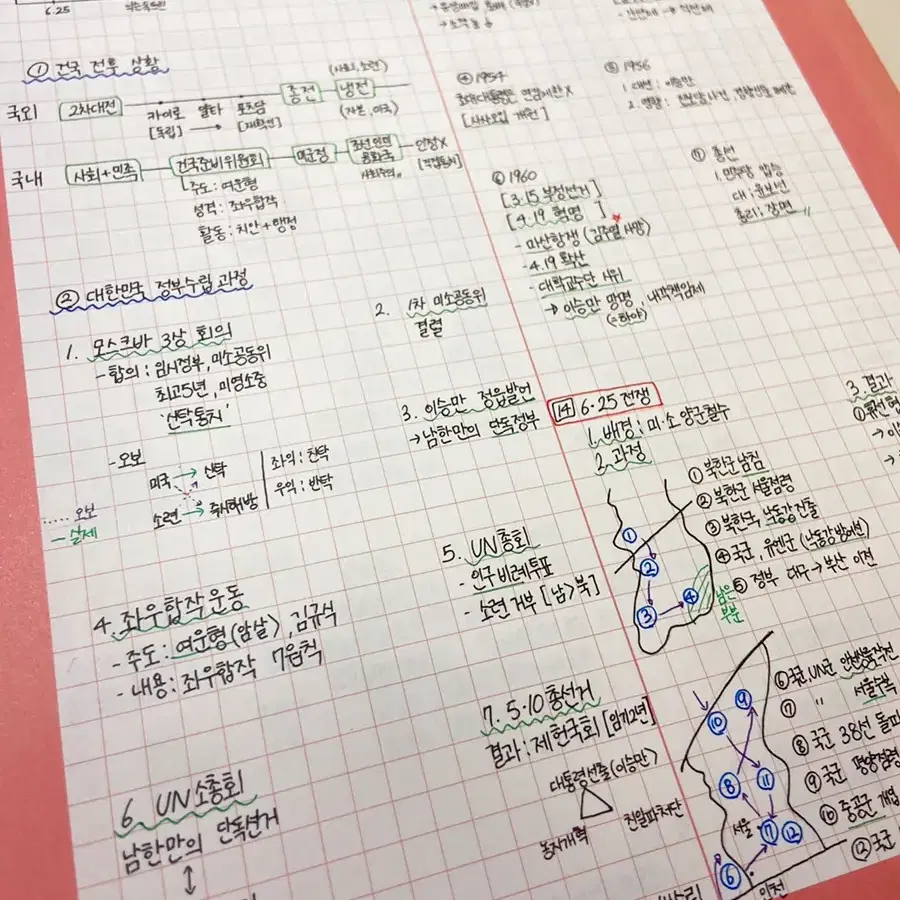 6.25
① 건국 전후 상황
(사회, 소련)
국외 2차대전 카이로 얄타 포츠담 종전 냉전
[독립] → [재확인] (자본, 미국)
국내 사회+민족 건국준비위원회 미군정 조선인민공화국 인정X
사회주의 (직접통치)
주도: 여운형
성격: 좌우합작
활동: 치안+행정
② 대한민국 정부수립 과정
1. 모스크바 3상 회의
- 합의: 임시정부, 미소공동위
최고5년, 미영소중
'신탁통치'
- 오보
미국 → 신탁
소련 → 즉시해방
좌익: 찬탁
우익: 반탁
...... 오보
— 실제
2. 1차 미소공동위
결렬
3. 이승만 정읍발언
→ 남한만의 단독정부
4. 좌우합작운동
- 주도: 여운형(암살), 김규식
- 내용: 좌우합작 7원칙
5. UN총회
- 인구비례투표
- 소련 거부 [남>북]
6. UN소총회
남한만의 단독선거
↕
7. 5·10 총선거
결과: 제헌국회 [임기2년]
대통령선출(이승만)
농지개혁 친일파처단
④ 1954
초대대통령은 연임제한X
[사사오입 개헌]
⑤ 1956
1. 대선: 이승만
2. 영향: 진보당사건, 경향신문 폐간
⑥ 1960
[3·15 부정선거]
[4·19 혁명]
- 마산항쟁 (김주열 사망)
- 4.19 확산
- 대학교수단 시위
→ 이승만 망명, 내각책임제
(=하야)
⑦ 총선
1. 민주당 압승
대: 윤보선
총리: 장면
14 6·25 전쟁
1. 배경: 미·소 양군철수
2. 과정
① 북한군 남침
② 북한군 서울점령
③ 북한국, 낙동강 진출
④ 국군, 유엔군 (낙동강 방어선)
⑤ 정부 대구→부산 이전
① ② ③ ④
남은
부분
⑥ 국군, UN군 인천상륙작전
⑦ " 서울수복
⑧ 국군 38선 돌파
⑨ 국군 평양점령
⑩ 중공군 개입
⑫ 국군
⑨ ⑩ ⑧ ⑪
서울 ⑦ ⑫
⑥ 인천
3. 결과